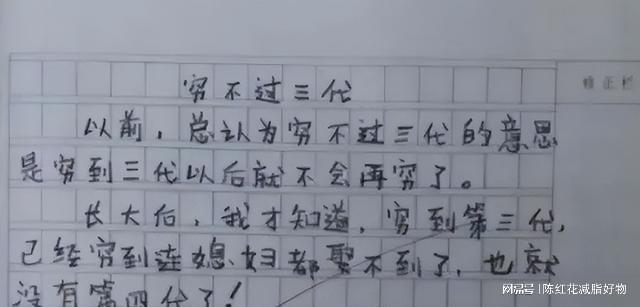 穷不过三代
修正栏
以前，总认为穷不过三代的意思
是穷到三代以后就不会再穷了。
长大后，我才知道，穷到第三代，
已经穷到连媳妇都娶不到了，也就
没有第四代了！
搜狐号@陈红花减脂好物